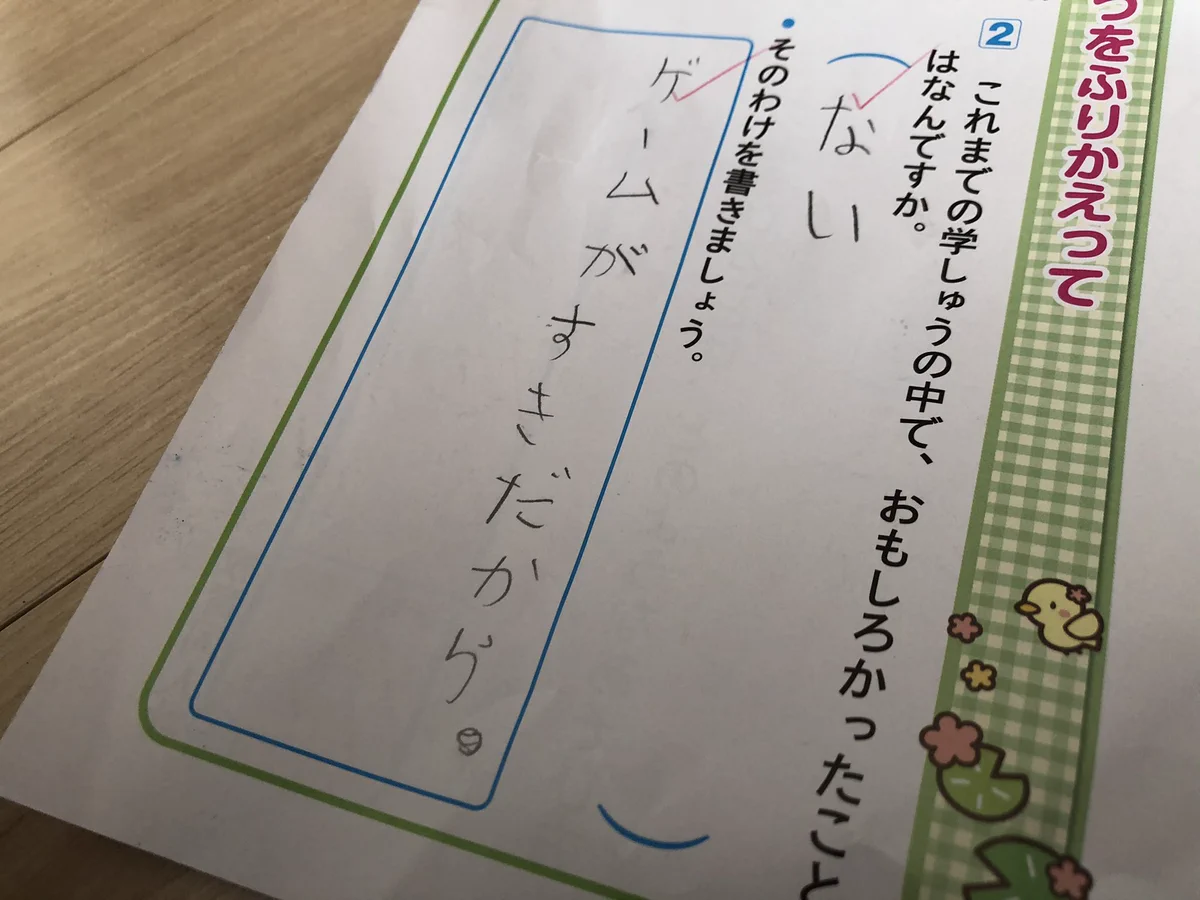 つをふりかえって
2
これまでの学しゅうの中で、おもしろかったこと
はなんですか。
ない
そのわけを書きましょう。
ゲームがすきだから。